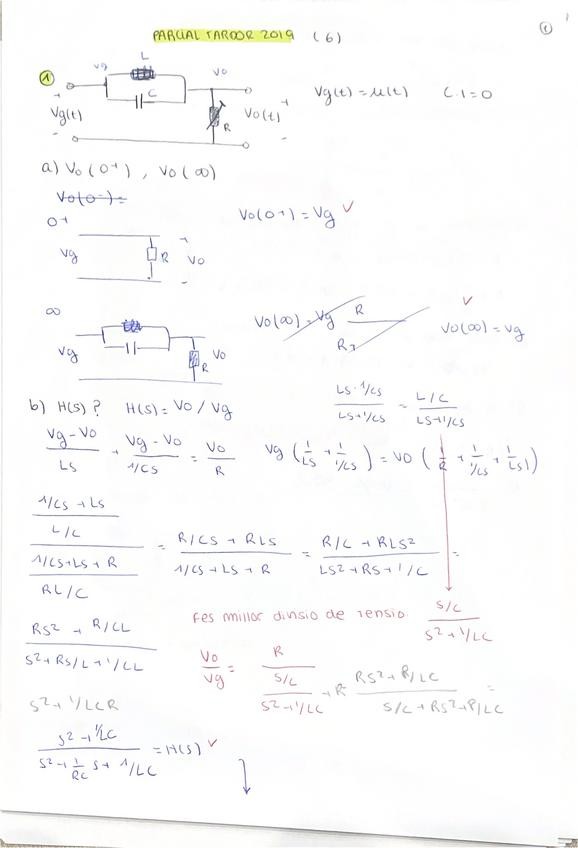 PARCIAL TARDOR 2019 (6)
1
Vg L Vo
C
Vg(t) R Vo(t) Vg(t) = u(t) C.I = 0
+ - + -
a) Vo (0+) , Vo (∞)
Vo(0-) =
0+ Vo(0+) = Vg ✓
Vg R + Vo -
∞ Vo(∞) = Vg R / R Vo(∞) = Vg ✓
Vg R Vo
b) H(s)? H(s) = Vo / Vg (Ls · 1/Cs)/(Ls + 1/Cs) = (L/C)/(Ls + 1/Cs)
(Vg - Vo)/Ls + (Vg - Vo)/(1/Cs) = Vo/R Vg (1/Ls + 1/(1/Cs)) = Vo (1/R + 1/(1/Cs) + 1/Ls)
((1/Cs + Ls)/(L/C))/((1/Cs + Ls + R)/(RL/C)) = (R/Cs + RLs)/(1/Cs + Ls + R) = (R/C + RLs²)/(Ls² + Rs + 1/C) =
Fes millor divisio de tensio. (s/C)/(s² + 1/LC)
(Rs² + R/CL)/(s² + Rs/L + 1/CL)
Vo/Vg = R/((s/C)/(s² + 1/LC) + R) (Rs² + R/LC)/(s/C + Rs² + R/LC) =
s² + 1/LCR
(s² + 1/LC)/(s² + 1/RC s + 1/LC) = H(s) ✓